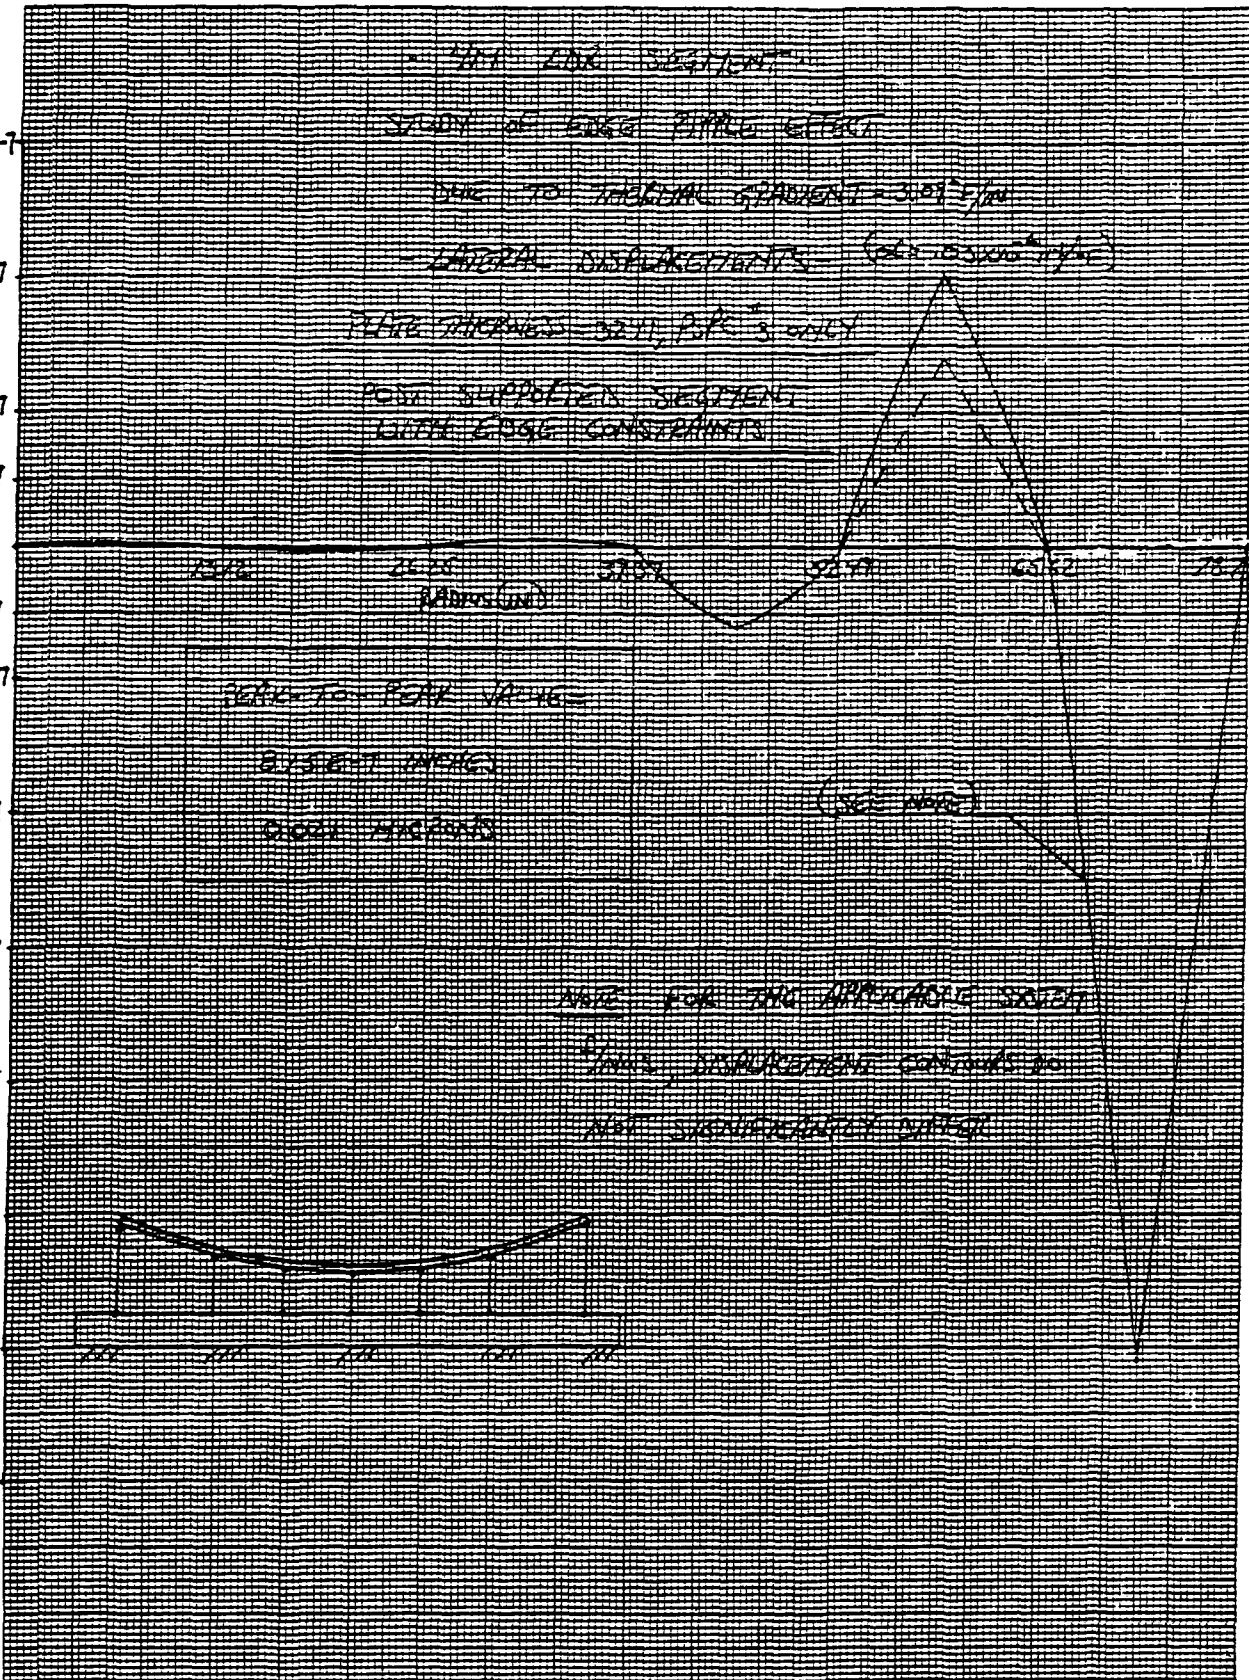 4M LDR SEGMENT
STUDY OF EDGE RIPPLE EFFECT
DUE TO THERMAL GRADIENT = 3.09°F/IN
- LATERAL DISPLACEMENTS -
PLATE THICKNESS = .3241, ONLY
POST SUPPORTED SEGMENT
WITH EDGE CONSTRAINTS
-7
7
7
7
13.12
26.25
39.37
52.49
65.62
78.7
RADIUS (IN)
7
PEAK-TO-PEAK VALUE =
8.15E-7 INCHES
0.021 MICRONS
(SEE NOTE)
NOTE FOR THE APPLICABLE SYSTEM
DISPLACEMENT CONTOURS DO
NOT SIGNIFICANTLY DIFFER